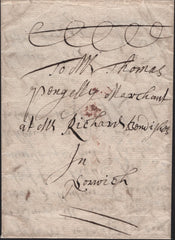 To Mr Thomas
Pengelly Marchant
at Mr Richard
In
Norwich